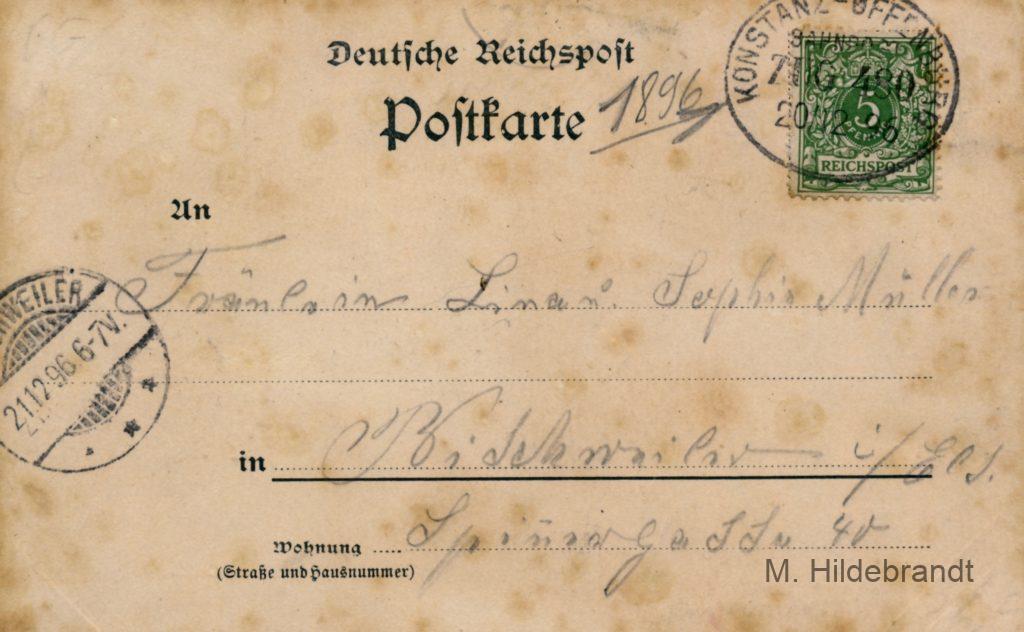 Deutsche Reichspost
Postkarte
1896
KONSTANZ-OFFENBURG
BAHNPOST
ZUG 480
20 12 96
5
REICHSPOST
An
Fräulein Lina u. Sophie Müller
WEILER
21 12 96 6-7V.
in Bischweiler i/Els.
Wohnung 40
(Straße und Hausnummer)
M. Hildebrandt